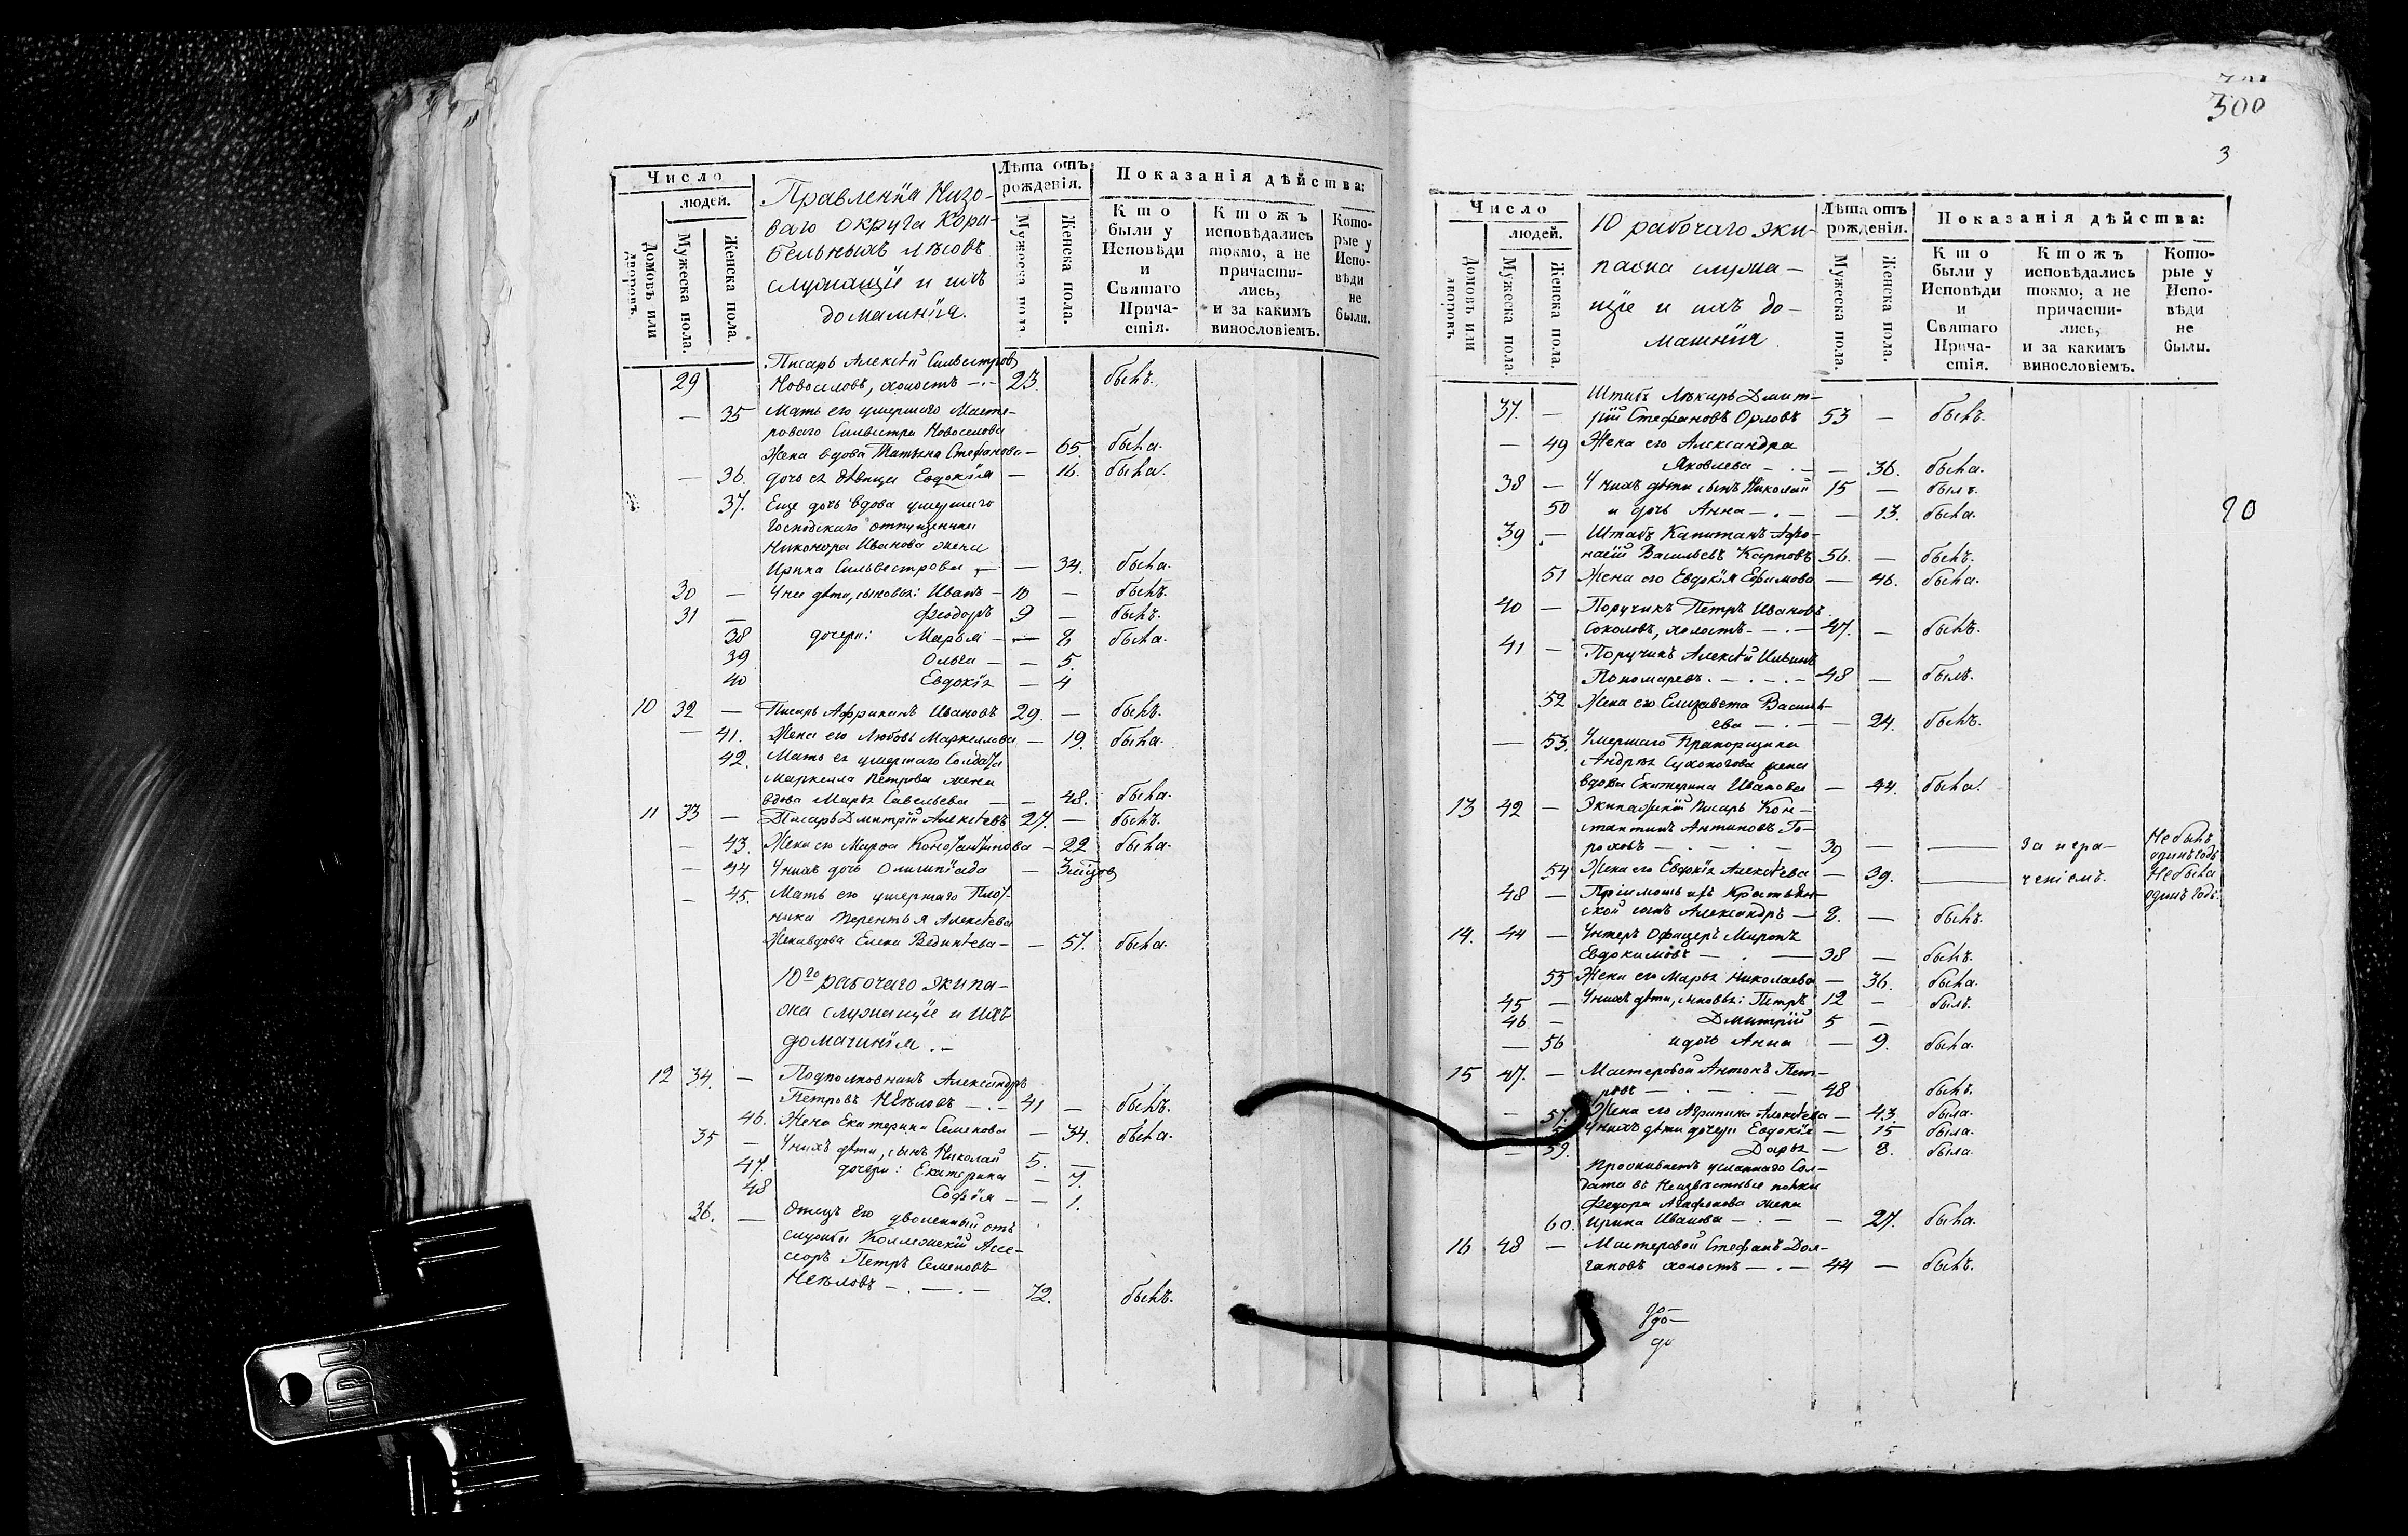 Число
людей.
Домовъ или дворовъ.
Мужеска пола.
Женска пола.
Правленія Низо-
ваго округа Кора-
бельныхъ лѣсовъ
служащіе и ихъ
домашнія.
Лѣта отъ рожденія.
Мужеска пола
Женска пола.
Показанія дѣйства:
Кто были у Исповѣди и Святаго Прича-стія.
Ктожъ исповѣдались токмо, а не причасти-лись, и за какимъ винословіемъ.
Кото-рые у Испо-вѣди не были.
Писарь Алексѣй Сильвестровъ
29 Новоселовъ, холостъ — 23. былъ.
— 35 Мать его умершаго Масте-
роваго Сильвестра Новоселова
Жена вдова Татьяна Стефанова — 65. была.
— 36. дочь ея дѣвица Евдокія — 16. была.
37. Еще дочь вдова умершаго
Господскаго отпущенника
Никонора Иванова жена
Ирина Сильвестрова — — 34. была.
30 — У нее дѣти, сыновья: Иванъ — 10 — былъ.
31 — Феодоръ 9 — былъ.
38 дочери: Марья — — 8 была.
39 Ольга — — 5.
40 Евдокія — 4
10 32 — Писарь Африканъ Ивановъ 29. — былъ.
— 41. Жена его Любовь Маркеллова — 19. была.
42. Мать ея умершаго Солдата
Маркелла Петрова жена
вдова Марья Савельева — — 48. была.
11 33 — Писарь Дмитрій Алексѣевъ 27. — былъ.
— 43. Жена его Марфа Константинова — 22 была.
— 44 У нихъ дочь Олимпіада —
— 45. Мать его умершаго Плот-
ника Терентья Алексѣева
Жена вдова Елена — — 57. была.
10го рабочаго экипа-
жа служащіе и ихъ
домашнія. —
12 34. — Подполковникъ Александръ
Петровъ Нееловъ — 41 — былъ.
46. Жена Екатерина Семенова — 34. была.
35 — У нихъ дѣти, сынъ Николай 5. —
47. дочери: Екатерина — 7.
48 Софія — — 1.
36. — Отецъ его уволенный отъ
службы Коллежскій Ассе-
соръ Петръ Семеновъ
Нееловъ — . — . — 72. былъ.
500
3
Число
людей.
Домовъ или дворовъ.
Мужеска пола.
Женска пола.
10 рабочаго эки-
пажа служа-
щіе и ихъ до-
машнія
Лѣта отъ рожденія.
Мужеска пола.
Женска пола.
Показанія дѣйства:
Кто были у Исповѣди и Святаго Прича-стія.
Ктожъ исповѣдались токмо, а не причасти-лись, и за какимъ винословіемъ.
Кото-рые у Испо-вѣди не были.
Штабъ Лѣкарь Дмит-
37. — рій Стефановъ Орловъ 53 — былъ.
— 49 Жена его Александра
Яковлева — . — — 36. была.
38 — У нихъ дѣти сынъ Николай 15 — былъ.
50 и дочь Анна — . — — 13. была.
90
39 — Штабъ Капитанъ Афо-
насій Васильевъ Карповъ 56. — былъ.
51 Жена его Евдокія Ефимова — 46. была.
40 — Поручикъ Петръ Ивановъ
Соколовъ, холостъ — . — 47. — былъ.
41 — Поручикъ Алексѣй Ильинъ
Пономаревъ. — . — . — 48 — былъ.
52 Жена его Елизавета Василь-
ева — . — — 24. былъ.
— 53. Умершаго Прапорщика
Андрея жена
вдова Екатерина Иванова — 44. была.
13 42 — Экипажскій Писарь Кон-
стантинъ Антиповъ Го-
роховъ — . — . — 39 — — За нера- Не былъ одинъ годъ
54 Жена его Евдокія Алексѣева — 39. — ченіемъ. Не была одинъ годъ.
48 — Пріимышъ изъ Крестьян-
ской сынъ Александръ — 8. — былъ.
14. 44 — Унтеръ Офицеръ Миронъ
Евдокимовъ — . — 38 — былъ.
55 Жена его Марья Николаева — 36. была.
45 — У нихъ дѣти, сыновья: Петръ 12 — былъ.
46 — Дмитрій 5 —
— 56 и дочь Анна — 9. была.
15 47. — Мастеровой Антонъ Пет-
ровъ — . — . — 48 былъ.
— 57. Жена его Агрипина Алексѣева — 43. была.
У нихъ дѣти дочери Евдокія — 15 была.
— 59. Дарья — 8. была.
Проживаетъ усланнаго Сол-
дата въ Неизвѣстные полки
Федора Агафонова жена
60. Ирина Иванова — . — — 27. была.
16 48 — Мастеровой Стефанъ Дол-
гановъ холостъ — . — 44 — былъ.
до—
до—
до